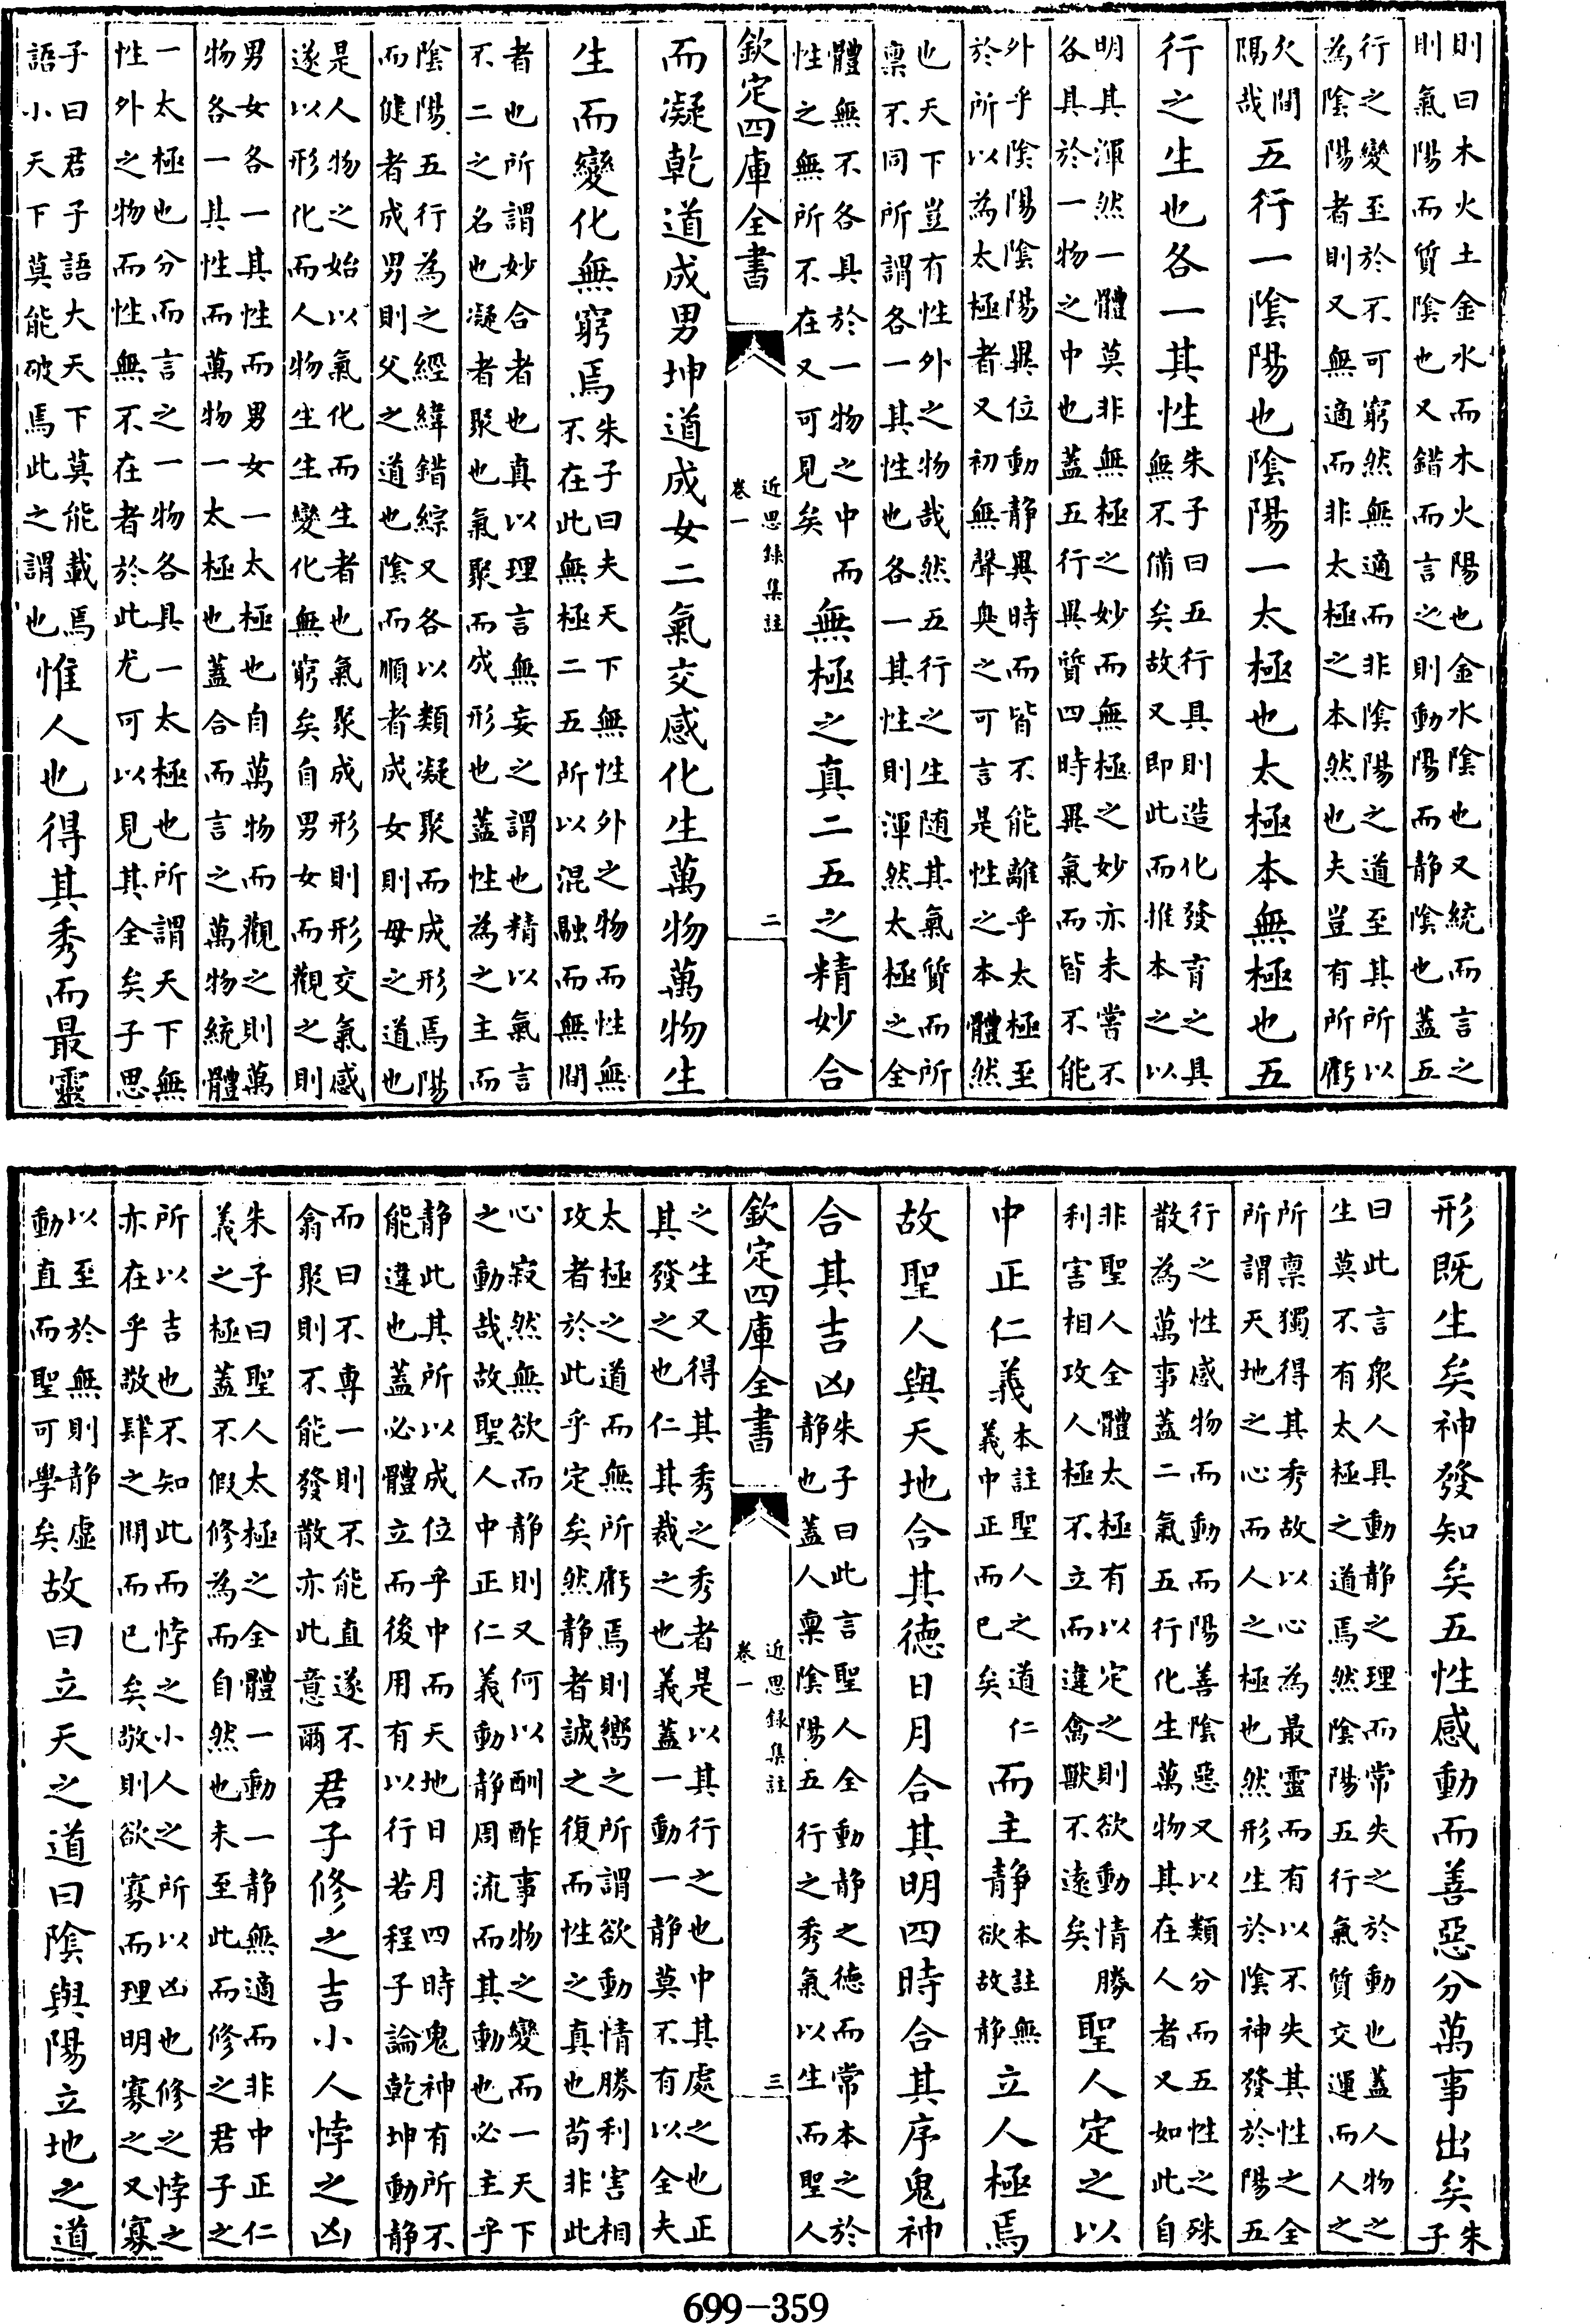 則曰木火土金水而木火陽也金水陰也又統而言之
則氣陽而質陰也又錯而言之則動陽而静陰也蓋五
行之變至於不可窮然無適而非陰陽之道至其所以
為陰陽者則又無適而非太極之本然也夫豈有所虧
欠間隔哉五行一陰陽也陰陽一太極也太極本無極也五
行之生也各一其性朱子曰五行具則造化發育之具無不備矣故又即此而推本之以
明其渾然一體莫非無極之妙而無極之妙亦未嘗不
各具於一物之中也蓋五行異質四時異氣而皆不能
外乎陰陽陰陽異位動静異時而皆不能離乎太極至
於所以為太極者又初無聲臭之可言是性之本體然
也天下豈有性外之物哉然五行之生随其氣質而所
稟不同所謂各一其性也各一其性則渾然太極之全
體無不各具於一物之中而性之無所不在又可見矣無極之真二五之精妙合
欽定四庫全書
近思錄集註
卷一
二
而凝乾道成男坤道成女二氣交感化生萬物萬物生
生而變化無窮焉朱子曰夫天下無性外之物而性無不在此無極二五所以混融而無間
者也所謂妙合者也真以理言無妄之謂也精以氣言
不二之名也凝者聚也氣聚而成形也蓋性為之主而
陰陽五行為之經緯錯綜又各以類凝聚而成形焉陽
而健者成男則父之道也陰而順者成女則母之道也
是人物之始以氣化而生者也氣聚成形則形交氣感
遂以形化而人物生生變化無窮矣自男女而觀之則
男女各一其性而男女一太極也自萬物而觀之則萬
物各一其性而萬物一太極也蓋合而言之萬物統體
一太極也分而言之一物各具一太極也所謂天下無
性外之物而性無不在者於此尤可以見其全矣子思
子曰君子語大天下莫能載焉語小天下莫能破焉此之謂也惟人也得其秀而最靈
形既生矣神發知矣五性感動而善惡分萬事出矣朱子
曰此言衆人具動静之理而常失之於動也蓋人物之
生莫不有太極之道焉然陰陽五行氣質交運而人之
所稟獨得其秀故其心為最靈而有以不失其性之全
所謂天地之心而人之極也然形生於陰神發於陽五
行之性感物而動而陽善陰惡又以類分而五性之殊
散為萬事蓋二氣五行化生萬物其在人者又如此自
非聖人全體太極有以定之則欲動情勝利害相攻人極不立而違禽獸不遠矣聖人定之以
中正仁義本註聖人之道仁義中正而已矣而主静本註無欲故静立人極焉
故聖人與天地合其德日月合其明四時合其序鬼神
合其吉凶朱子曰此言聖人全動静之徳而常本之於静也蓋人稟陰陽五行之秀氣以生而聖人
欽定四庫全書
近思録集註
卷一
三
之生又得其秀之秀者是以其行之也中其處之也正
其發之也仁其裁之也義蓋一動一静莫不有以全夫
太極之道而無所虧焉則嚮之所謂欲動情勝利害相
攻者於此乎定矣然静者誠之復而性之真也苟非此
心寂然無欲而静則又何以酬酢事物之變而一天下
之動哉故聖人中正仁義動静周流而其動也必主乎
静此其所以成位乎中而天地日月四時鬼神有所不
能違也蓋必體立而後用有以行若程子論乾坤動静
而曰不專一則不能直遂不翕聚則不能發散亦此意爾君子修之吉小人悖之凶
朱子曰聖人太極之全體一動一静無適而非中正仁
義之極蓋不假修為而自然也未至此而修之君子之
所以吉也不知此而悖之小人之所以凶也修之悖之
亦在乎敬肆之間而已矣敬則欲寡而理明寡之又寡
以至於無則静虚動直而聖可學矣故曰立天之道曰陰與陽立地之道
699-359